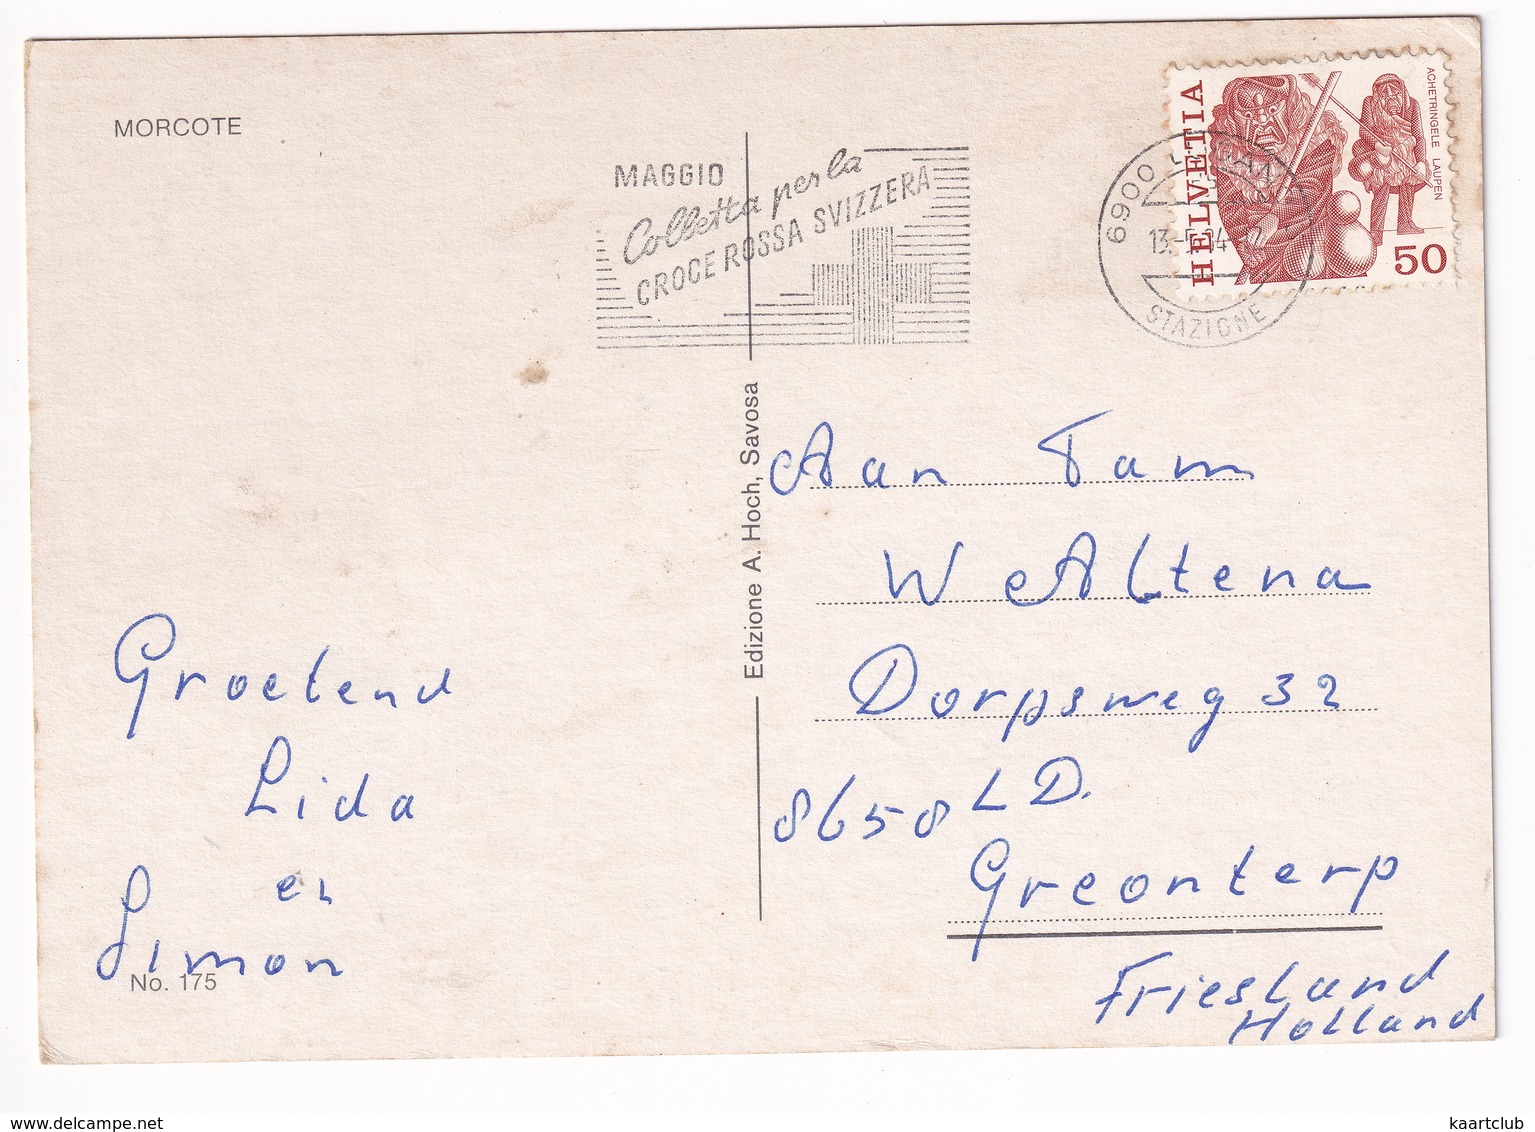 MORCOTE
MAGGIO
Colletta per la
CROCE ROSSA SVIZZERA
6900 LUGANO
13.-5.84-12
STAZIONE
HELVETIA
ACHETRINGELE LAUPEN
50
Edizione A. Hoch, Savosa
Groetend
Lida
en
Simon
No. 175
Aan Fam
W eAltena
Dorpsweg 32
8658 LD.
Greonterp
Friesland
Holland
delcampe.net
kaartclub